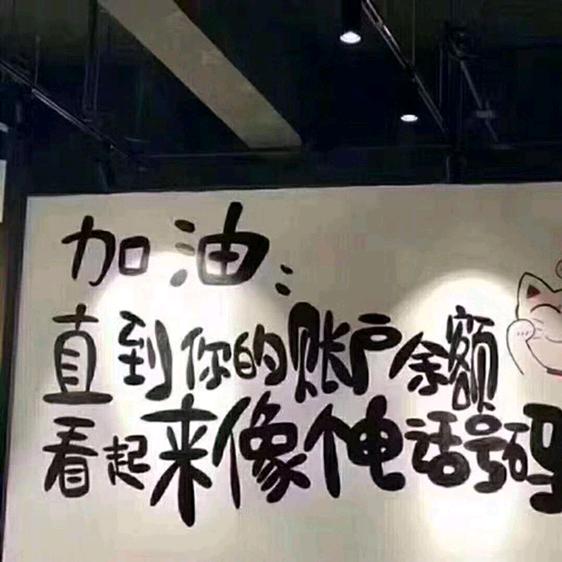 加油：
直到你的账户余额
看起来像个电话号码